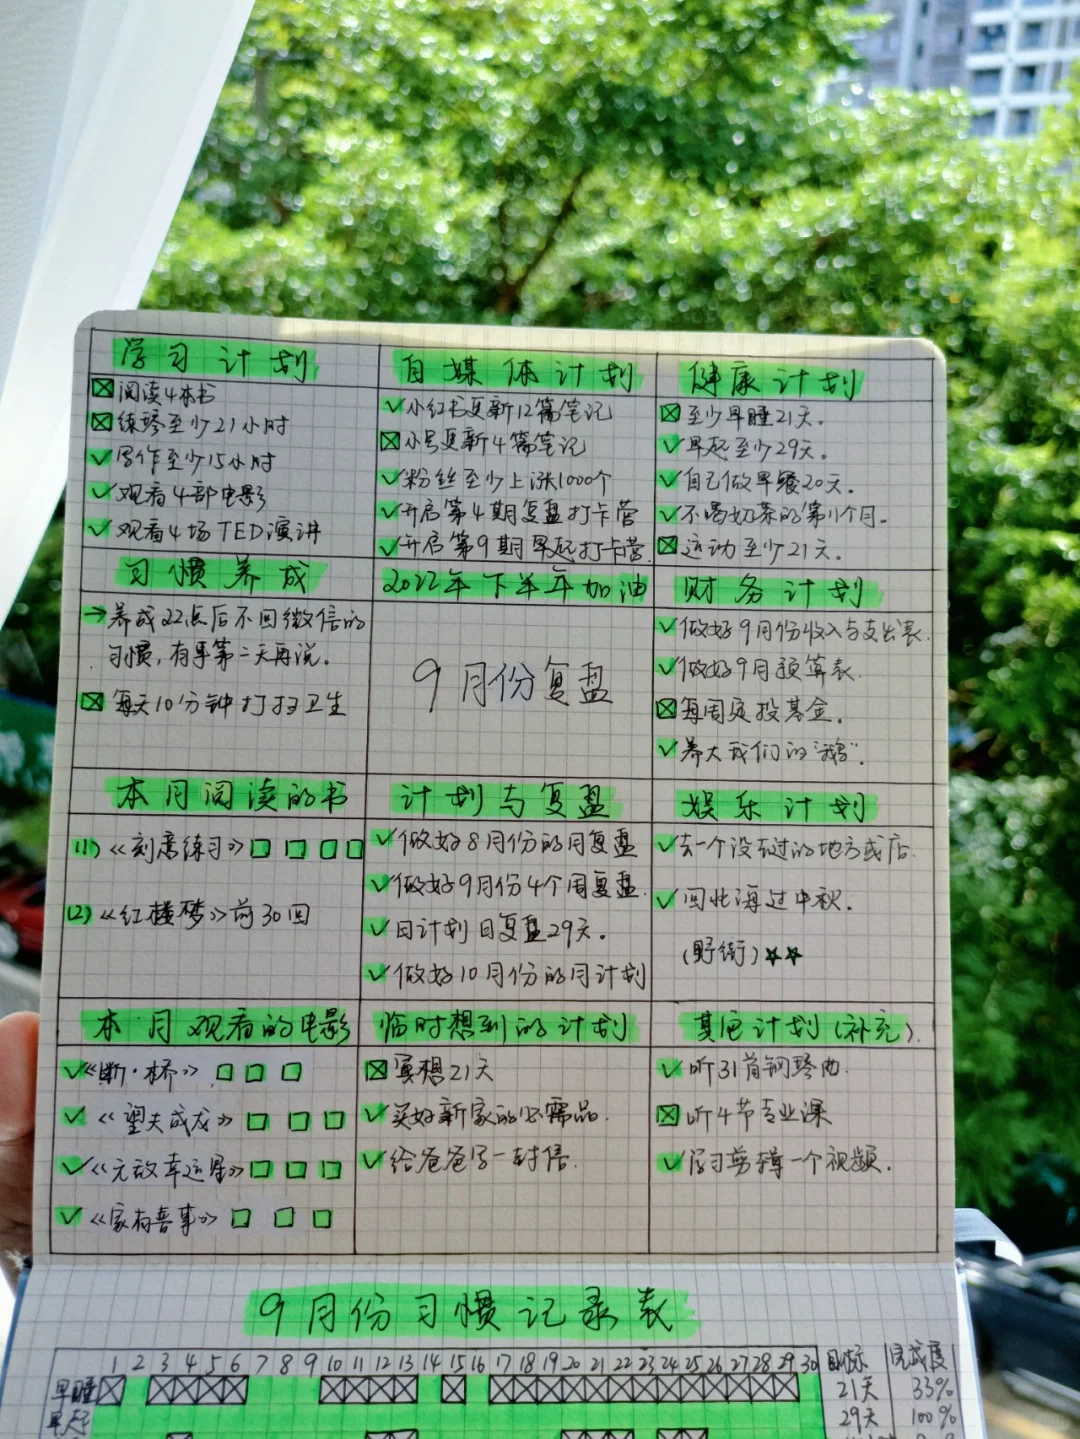 学习计划
☒阅读4本书
☒练琴至少21小时
✓写作至少15小时
✓观看4部电影
✓观看4场TED演讲
自媒体计划
✓小红书更新12篇笔记
☒小号更新4篇笔记
✓粉丝至少上涨1000个
✓开启第4期复盘打卡营
✓开启第9期早起打卡营
健康计划
☒至少早睡21天。
✓早起至少29天。
✓自己做早餐20天。
✓不喝奶茶的第11个月。
☒运动至少21天。
习惯养成
→养成22点后不回微信的
习惯,有事第二天再说。
☒每天10分钟打扫卫生
2022年下半年加油
9月份复盘
财务计划
✓做好9月份收入与支出表.
✓做好9月预算表.
☒每周定投基金.
✓养大我们的“鹅”.
本月阅读的书
(1)《刻意练习》□ □ □ □
(2)《红楼梦》前30回
计划与复盘
✓做好8月份的月复盘
✓做好9月份4个周复盘.
✓日计划日复盘29天。
✓做好10月份的月计划
娱乐计划
✓去一个没去过的地方或店.
✓回北海过中秋.
(野街)★★
本月观看的电影
✓《断·桥》□ □ □
✓《望夫成龙》□ □ □
✓《无敌幸运星》□ □ □
✓《家有喜事》□ □ □
临时想到的计划
☒冥想21天
✓买好新家的必需品.
✓给爸爸写一封信.
其它计划(补充)
✓听31首钢琴曲.
☒听4节专业课
✓学习剪辑一个视频.
9月份习惯记录表
1 2 3 4 5 6 7 8 9 10 11 12 13 14 15 16 17 18 19 20 21 22 23 24 25 26 27 28 29 30 目标 完成度
早睡 21天 33%
早起 29天 100%